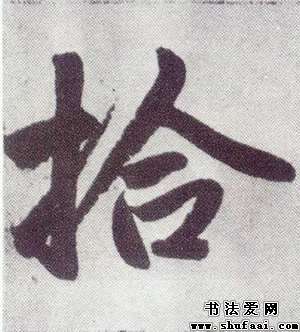 拾
书法爱网
www.shufaai.com